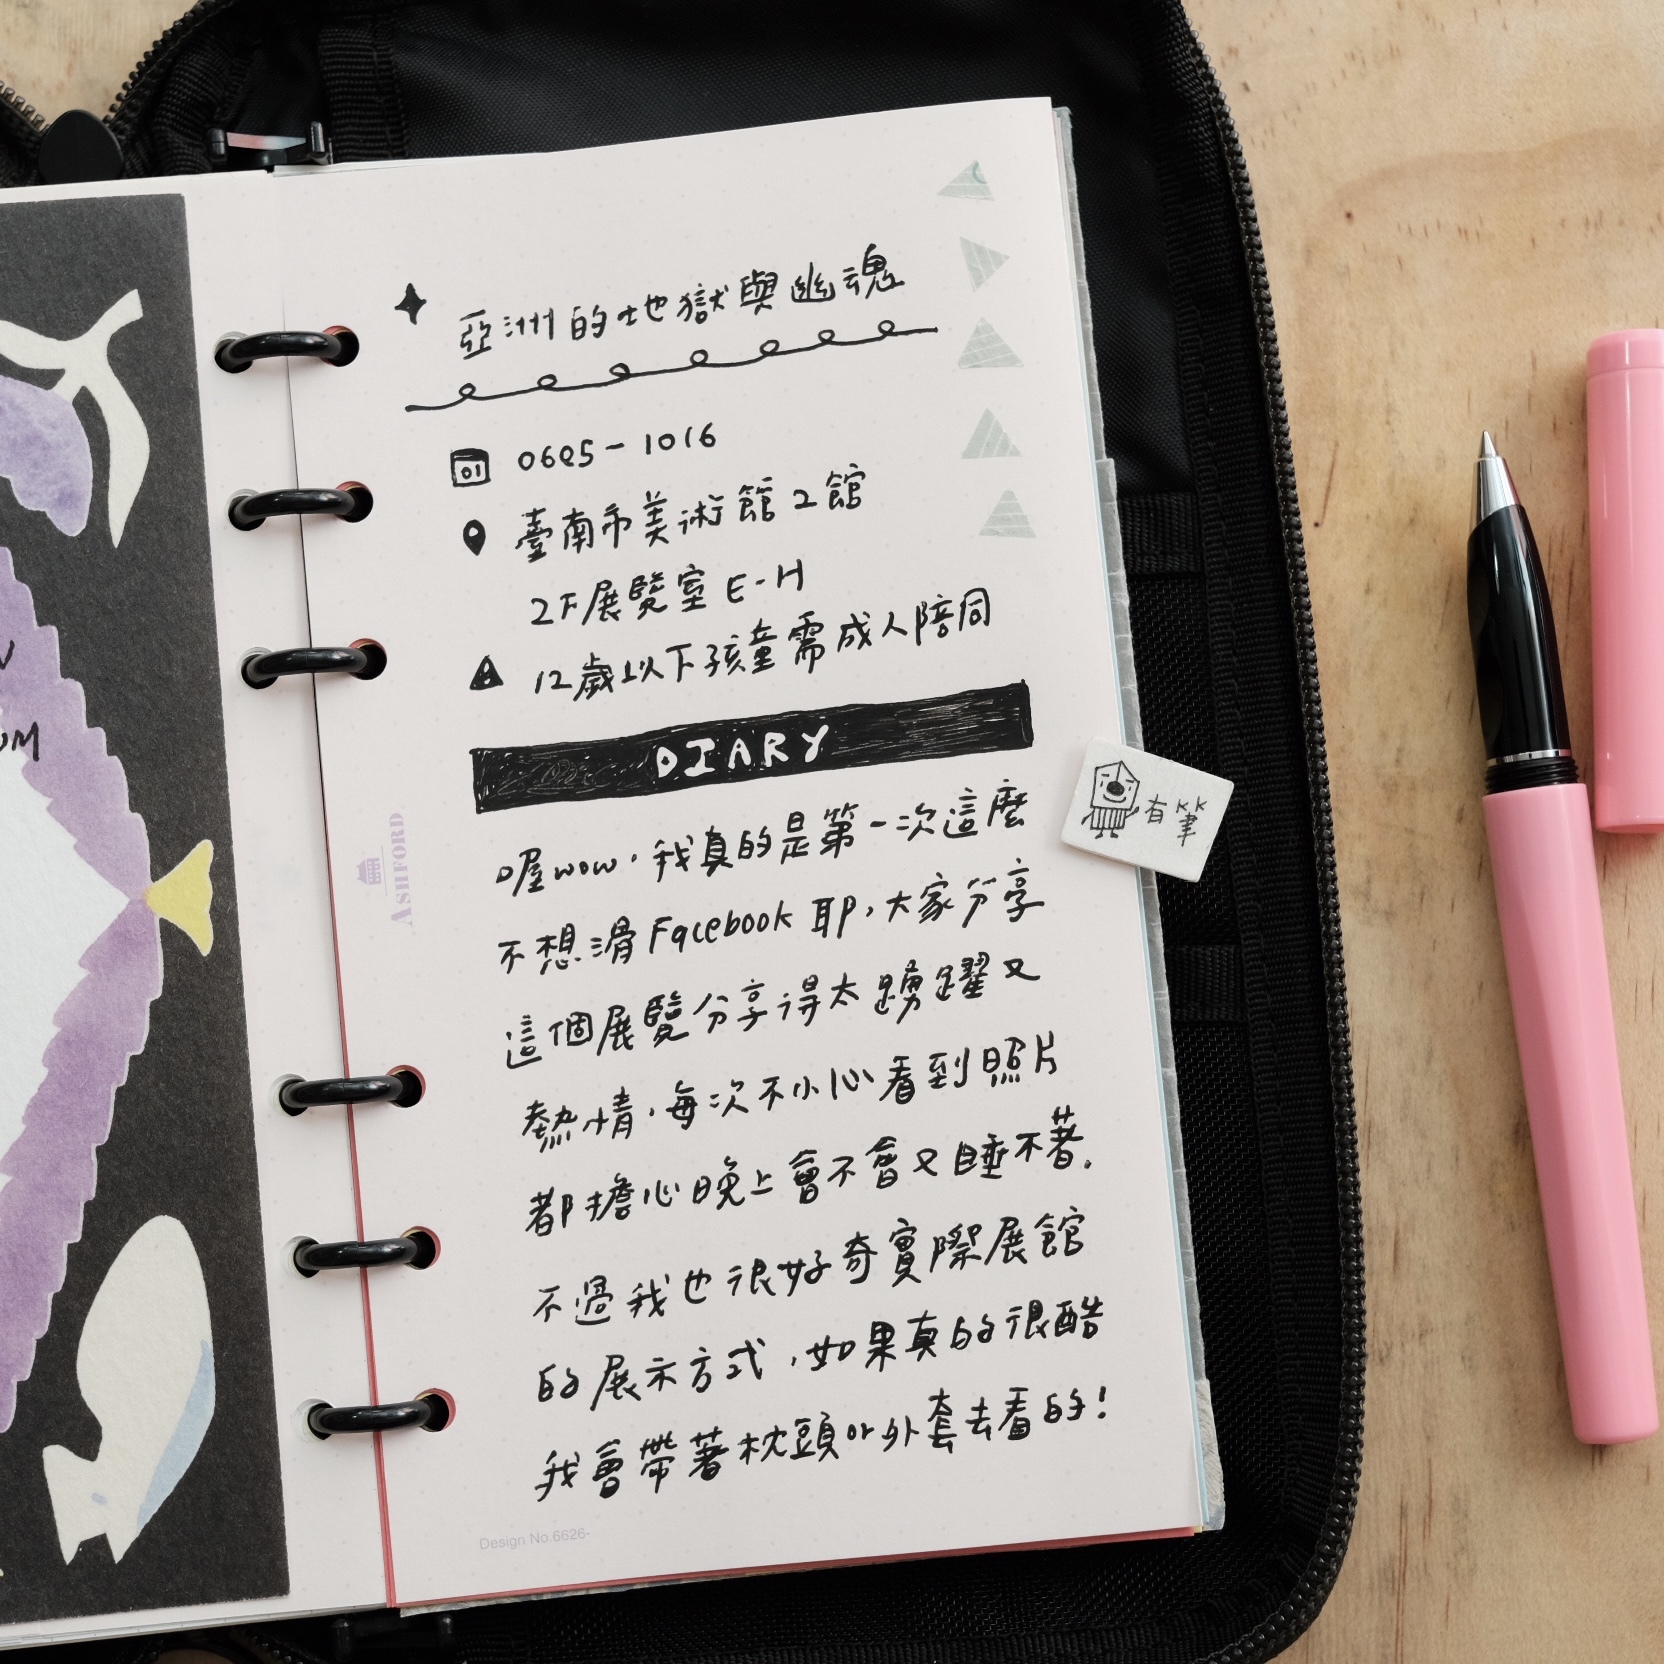 亞洲的地獄與幽魂
01
0625-1016
臺南市美術館2館
2F展覽室 E-H
12歲以下孩童需成人陪同
DIARY
喔wow,我真的是第一次這麼
不想滑Facebook耶,大家分享
這個展覽分享得太踴躍又
熱情,每次不小心看到照片
都擔心晚上會不會又睡不著.
不過我也很好奇實際展館
的展示方式,如果真的很酷
我會帶著枕頭or外套去看的!
有筆
ASHFORD
Design No.6626-